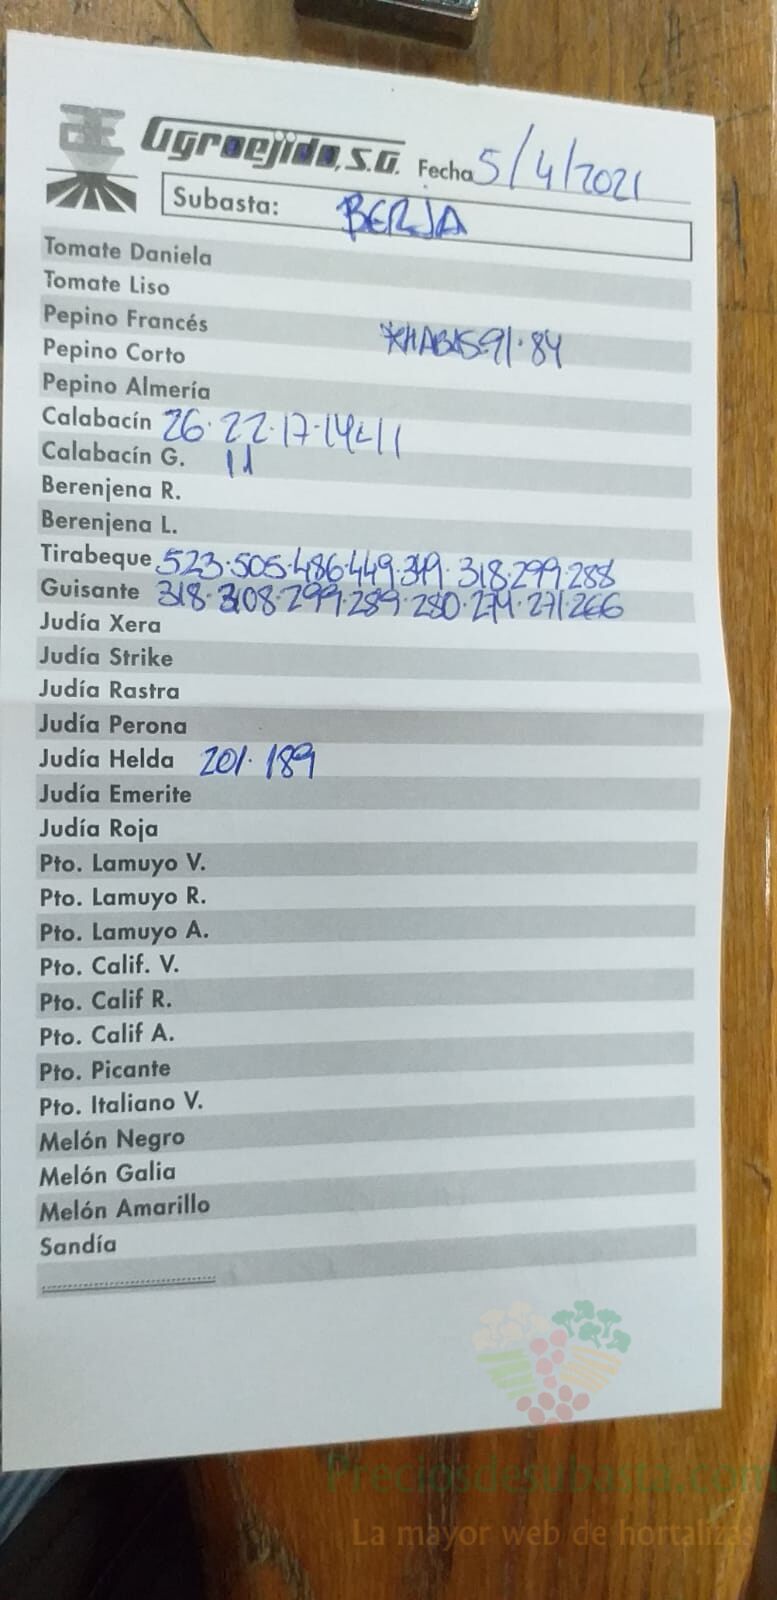 Agroejido, S.A. Fecha 5/4/2021
Subasta: BERJA
Tomate Daniela
Tomate Liso
Pepino Francés
*HABAS·91·84
Pepino Corto
Pepino Almería
Calabacín 26·22·17·14·11
Calabacín G. 11
Berenjena R.
Berenjena L.
Tirabeque 523·505·486·449·349·318·299·288
Guisante 318·308·299·289·280·274·271·266
Judía Xera
Judía Strike
Judía Rastra
Judía Perona
Judía Helda 201·189
Judía Emerite
Judía Roja
Pto. Lamuyo V.
Pto. Lamuyo R.
Pto. Lamuyo A.
Pto. Calif. V.
Pto. Calif R.
Pto. Calif A.
Pto. Picante
Pto. Italiano V.
Melón Negro
Melón Galia
Melón Amarillo
Sandía
Preciosdesubasta.com
La mayor web de hortalizas